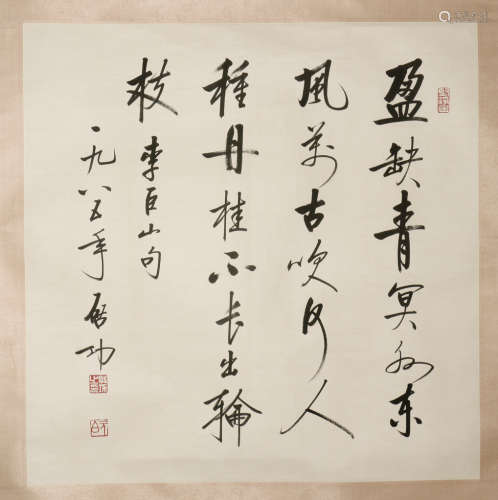 盈缺青冥外东
风万古吹何人
种丹桂不长出轮
枝 李巨山句
一九八五年 启功